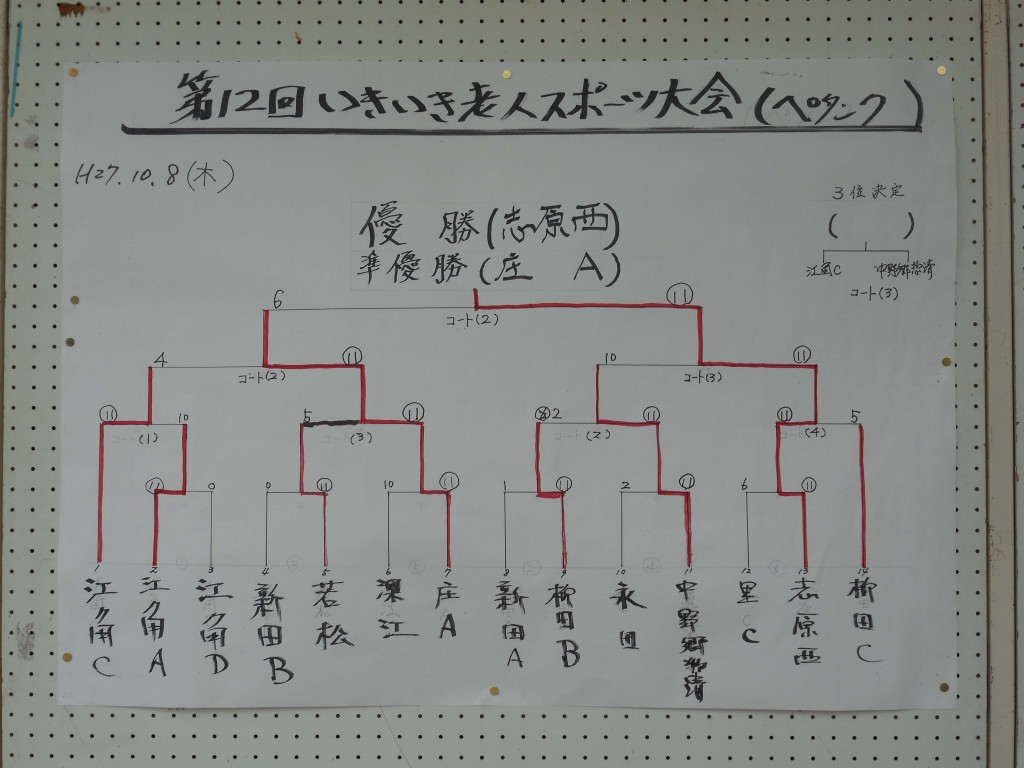 第12回いきいき老人スポーツ大会(ペタンク)
H27.10.8(木)
3位決定
( )
中野郷惣清
コート(3)
優勝(志原西)
準優勝(庄 A)
6 ⑪
コート(2)
4 ⑪ 10 ⑪
コート(2) コート(3)
⑪ 10 5 ⑪ 2 ⑪ ⑪ 5
コート(1) (3) コート(2) コート(4)
⑪ 0 0 ⑪ 10 ⑪ 1 ⑪ 2 ⑪ 6 ⑪
1 2 3 4 5 6 7 8 9 10 11 12 13 14
江角C
江角A
江角D
新田B
若松
深江
庄A
新田A
柳田B
永田
中野郷惣清
里C
志原西
柳田C